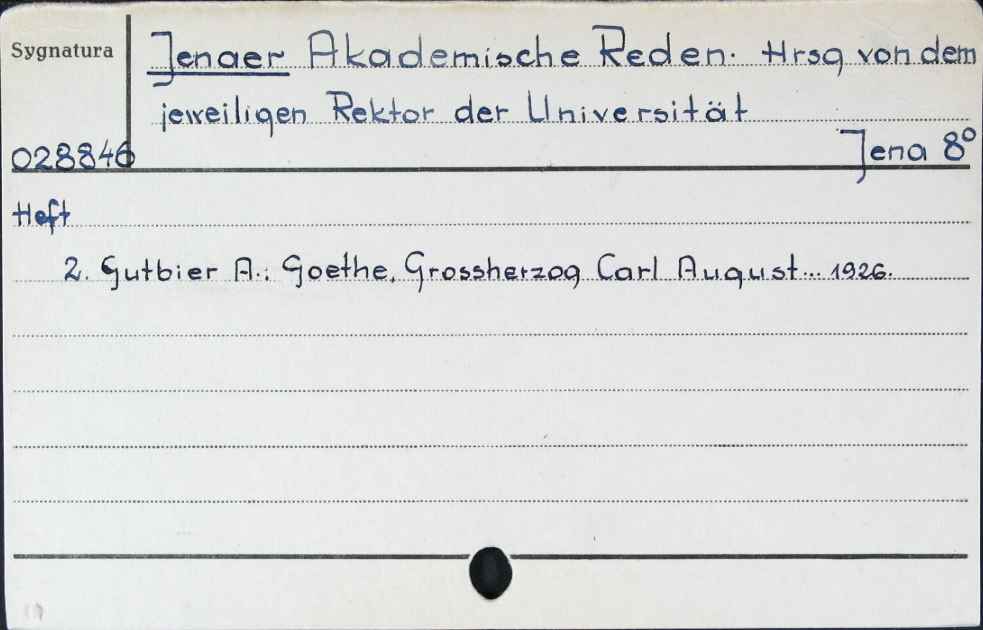 Sygnatura
Jenaer Akademische Reden. Hrsg von dem
jeweiligen Rektor der Universität
028846
Jena 8°
Heft
2. Gutbier A.: Goethe, Grossherzog Carl August... 1926.